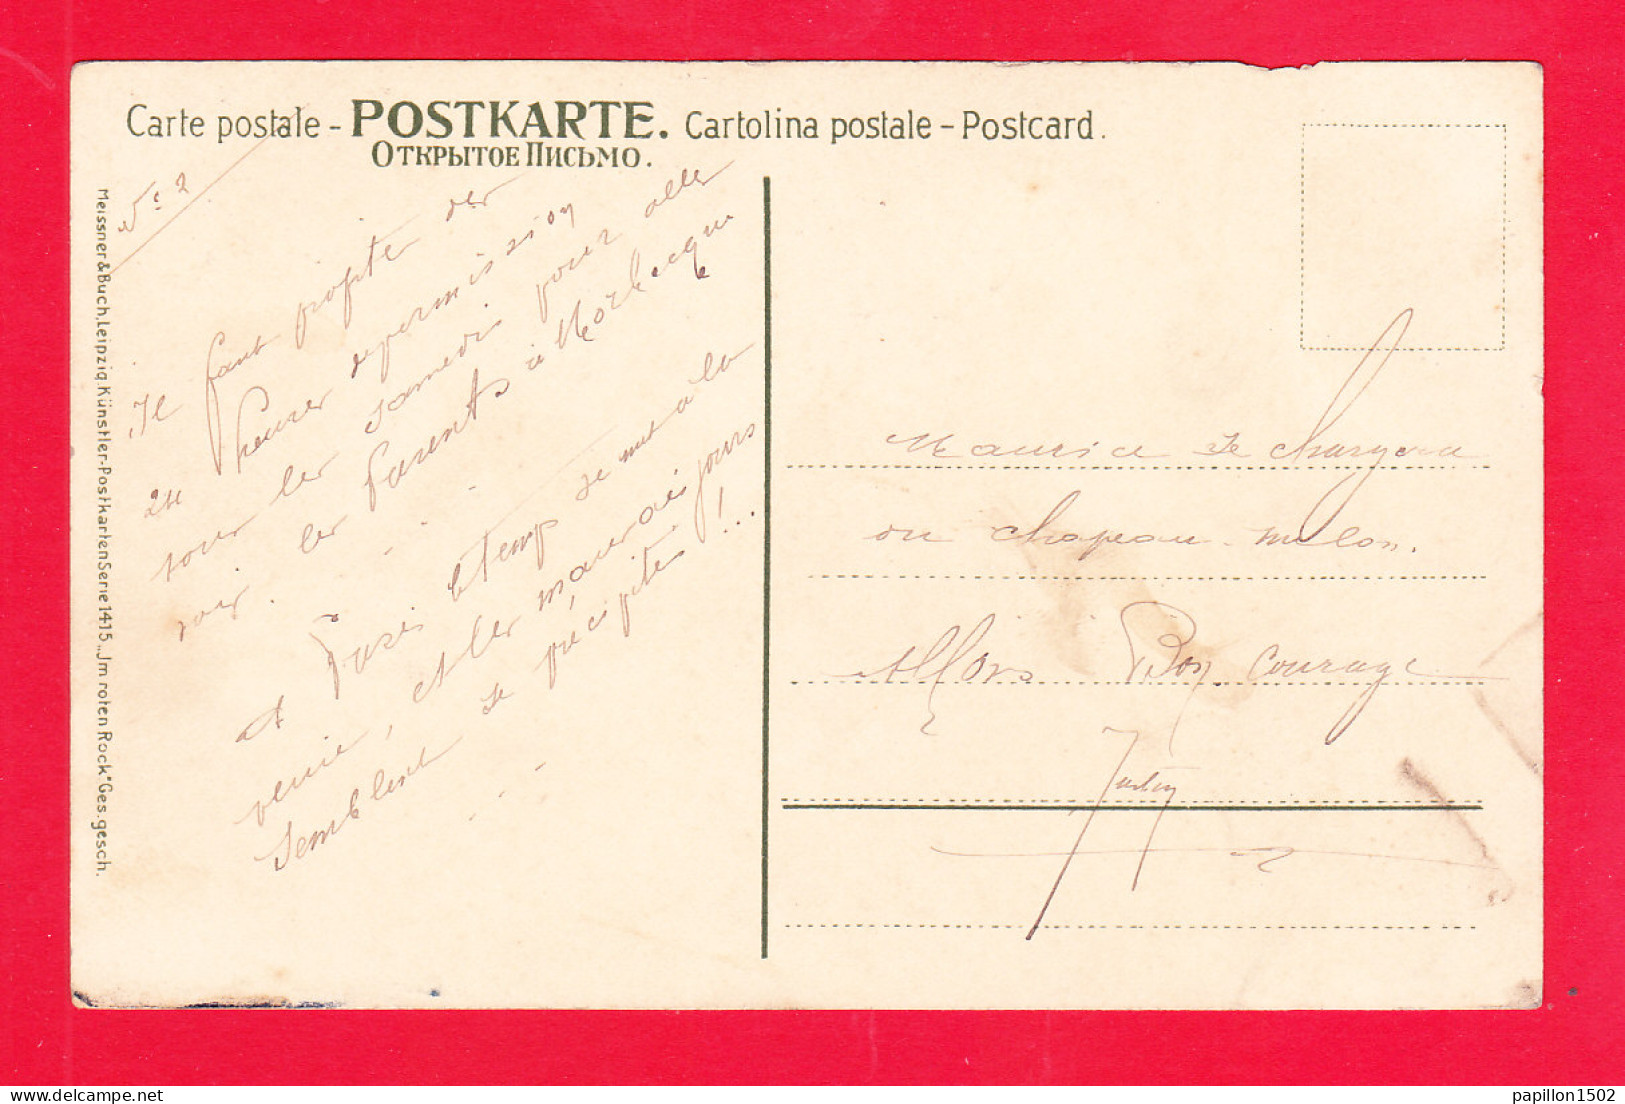 Carte postale - POSTKARTE. Cartolina postale - Postcard.
ОТКРЫТОЕ ПИСЬМО.
Meissner & Buch, Leipzig. Künstler-Postkarten Serie 1415 „Jm roten Rock" Ges. gesch.
N° 2
Il faut profiter des
24 heures de permission
tous les samedis pour aller
voir les Parents à Morbecque
A Paris le temps
venir, et les mauvais jours
semblent se précipiter !..
Maurice se chargera
du chapeau-melon.
Allons Bon Courage
Justin
papillon1502